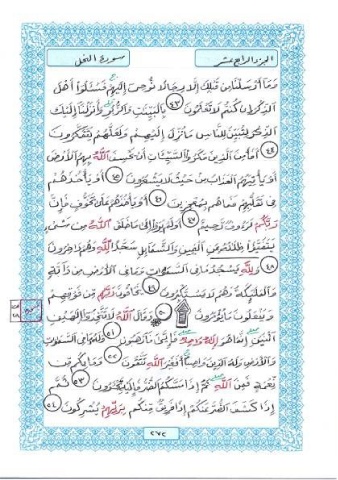 الجزء الرابع عشر
سورة النحل
وَمَا أَرْسَلْنَا مِن قَبْلِكَ إِلَّا رِجَالًا نُّوحِي إِلَيْهِمْ فَسْـَٔلُوا أَهْلَ
الذِّكْرِ إِن كُنتُمْ لَا تَعْلَمُونَ ٤٣ بِالْبَيِّنَٰتِ وَالزُّبُرِ وَأَنزَلْنَا إِلَيْكَ
الذِّكْرَ لِتُبَيِّنَ لِلنَّاسِ مَا نُزِّلَ إِلَيْهِمْ وَلَعَلَّهُمْ يَتَفَكَّرُونَ
٤٤ أَفَأَمِنَ الَّذِينَ مَكَرُوا السَّيِّئَاتِ أَن يَخْسِفَ اللَّهُ بِهِمُ الْأَرْضَ
أَوْ يَأْتِيَهُمُ الْعَذَابُ مِنْ حَيْثُ لَا يَشْعُرُونَ ٤٥ أَوْ يَأْخُذَهُمْ
فِي تَقَلُّبِهِمْ فَمَا هُم بِمُعْجِزِينَ ٤٦ أَوْ يَأْخُذَهُمْ عَلَى تَخَوُّفٍ فَإِنَّ
رَبَّكُمْ لَرَءُوفٌ رَّحِيمٌ ٤٧ أَوَلَمْ يَرَوْا إِلَى مَا خَلَقَ اللَّهُ مِن شَيْءٍ
يَتَفَيَّؤُا ظِلَٰلُهُ عَنِ الْيَمِينِ وَالشَّمَائِلِ سُجَّدًا لِّلَّهِ وَهُمْ دَاخِرُونَ
٤٨ وَلِلَّهِ يَسْجُدُ مَا فِي السَّمَٰوَاتِ وَمَا فِي الْأَرْضِ مِن دَابَّةٍ
وَالْمَلَٰئِكَةُ وَهُمْ لَا يَسْتَكْبِرُونَ ٤٩ يَخَافُونَ رَبَّهُم مِّن فَوْقِهِمْ
وَيَفْعَلُونَ مَا يُؤْمَرُونَ ٥٠ وَقَالَ اللَّهُ لَا تَتَّخِذُوا إِلَٰهَيْنِ
اثْنَيْنِ إِنَّمَا هُوَ إِلَٰهٌ وَاحِدٌ فَإِيَّٰيَ فَارْهَبُونِ ٥١ وَلَهُ مَا فِي السَّمَٰوَاتِ
وَالْأَرْضِ وَلَهُ الدِّينُ وَاصِبًا أَفَغَيْرَ اللَّهِ تَتَّقُونَ ٥٢ وَمَا بِكُم مِّن
نِّعْمَةٍ فَمِنَ اللَّهِ ثُمَّ إِذَا مَسَّكُمُ الضُّرُّ فَإِلَيْهِ تَجْـَٔرُونَ ٥٣ ثُمَّ
إِذَا كَشَفَ الضُّرَّ عَنكُمْ إِذَا فَرِيقٌ مِّنكُم بِرَبِّهِمْ يُشْرِكُونَ ٥٤
٢٧٢